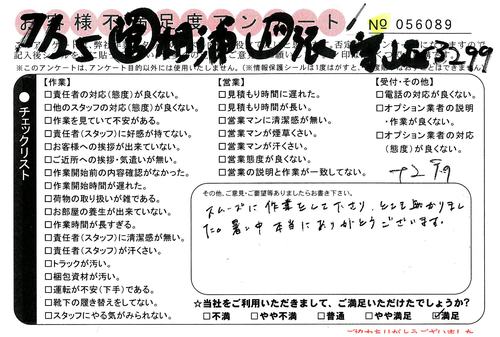 お客様不満足度アンケート
No 056089
※このアンケートは、アンケート目的以外には使用いたしません。
チェックリスト
【作業】
□責任者の対応(態度)が良くない。
□他のスタッフの対応(態度)が良くない。
□作業を見ていて不安がある。
□責任者(スタッフ)に好感が持てない。
□お客様への挨拶が出来ていない。
□ご近所への挨拶・気遣いが無い。
□作業開始前の内容確認がなかった。
□作業開始時間が遅れた。
□荷物の取り扱いが雑である。
□お部屋の養生が出来ていない。
□作業時間が長すぎる。
□責任者(スタッフ)に清潔感が無い。
□責任者(スタッフ)が汗くさい。
□トラックが汚い。
□梱包資材が汚い。
□運転が不安(下手)である。
□靴下の履き替えをしてない。
□スタッフにやる気がみられない。
【営業】
□見積もり時間に遅れた。
□見積もり時間が長い。
□営業マンに清潔感が無い。
□営業マンが煙草くさい。
□営業マンが汗くさい。
□営業態度が良くない。
□営業の説明と作業が一致してない。
【受付・その他】
□電話の対応が良くない。
□オプション業者の説明
・作業が良くない。
□オプション業者の対応
(態度)が良くない。
その他、ご意見・ご要望等ありましたらお書き下さい。
スムーズに作業をして下さり、とても助かりまし
た。暑い中本当にありがとうございます。
☆当社をご利用いただきまして、ご満足いただけたでしょうか?
□不満 □やや不満 □普通 □やや満足 ☑満足
ご協力ありがとうございました